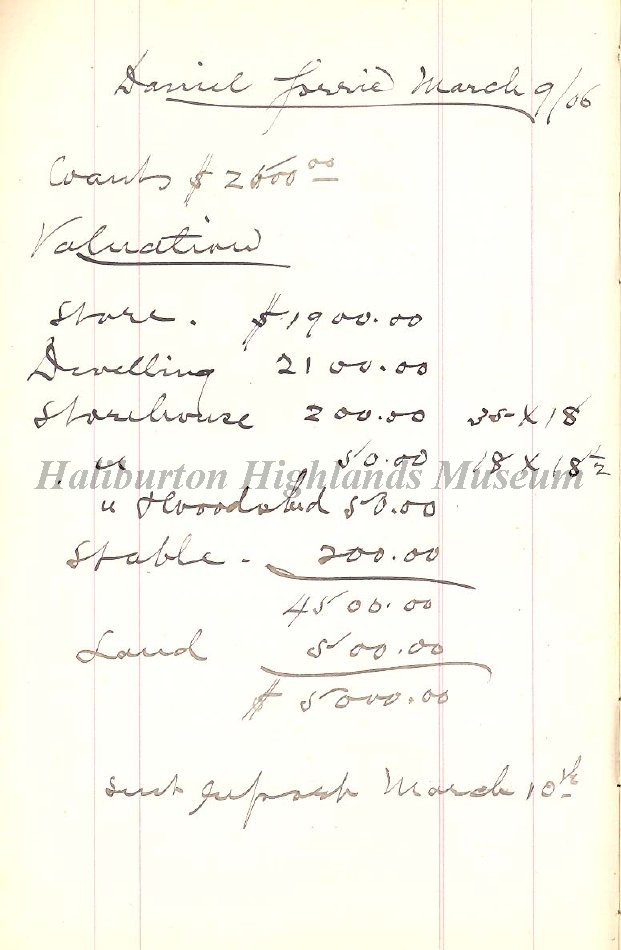 Daniel March 9/06
Wants $ 2500 00
Valuation
Store. $1900.00
Dwelling 2100.00
Storehouse 200.00 35 X 18
" 50.00 18 X 18 1/2
Haliburton Highlands Museum
" & Woodshed 50.00
Stable - 200.00
4500.00
Land 500.00
$ 5000.00
Sent report March 10th